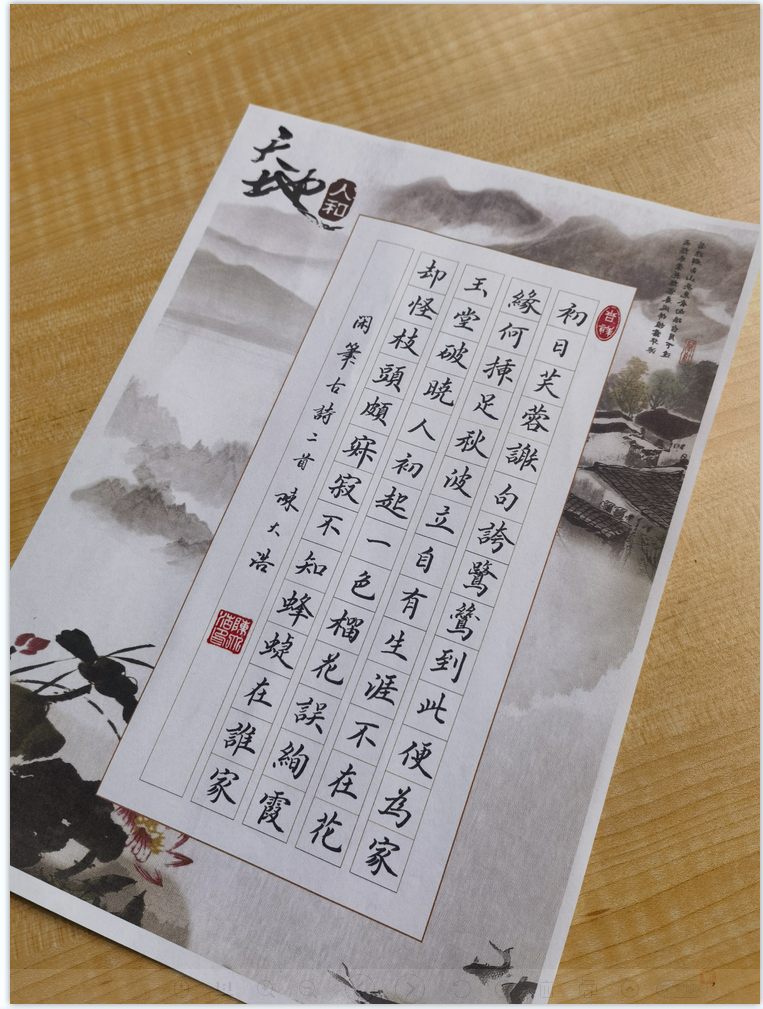 天地
人和
吉祥
初日芙蓉謝句誇鷺鷥到此便為家
緣何插足秋波立自有生涯不在花
玉堂破曉人初起一色榴花誤絢霞
却怪枝頭頗寂不知蜂蝶在誰家
閑筆古詩二首 陳大浩